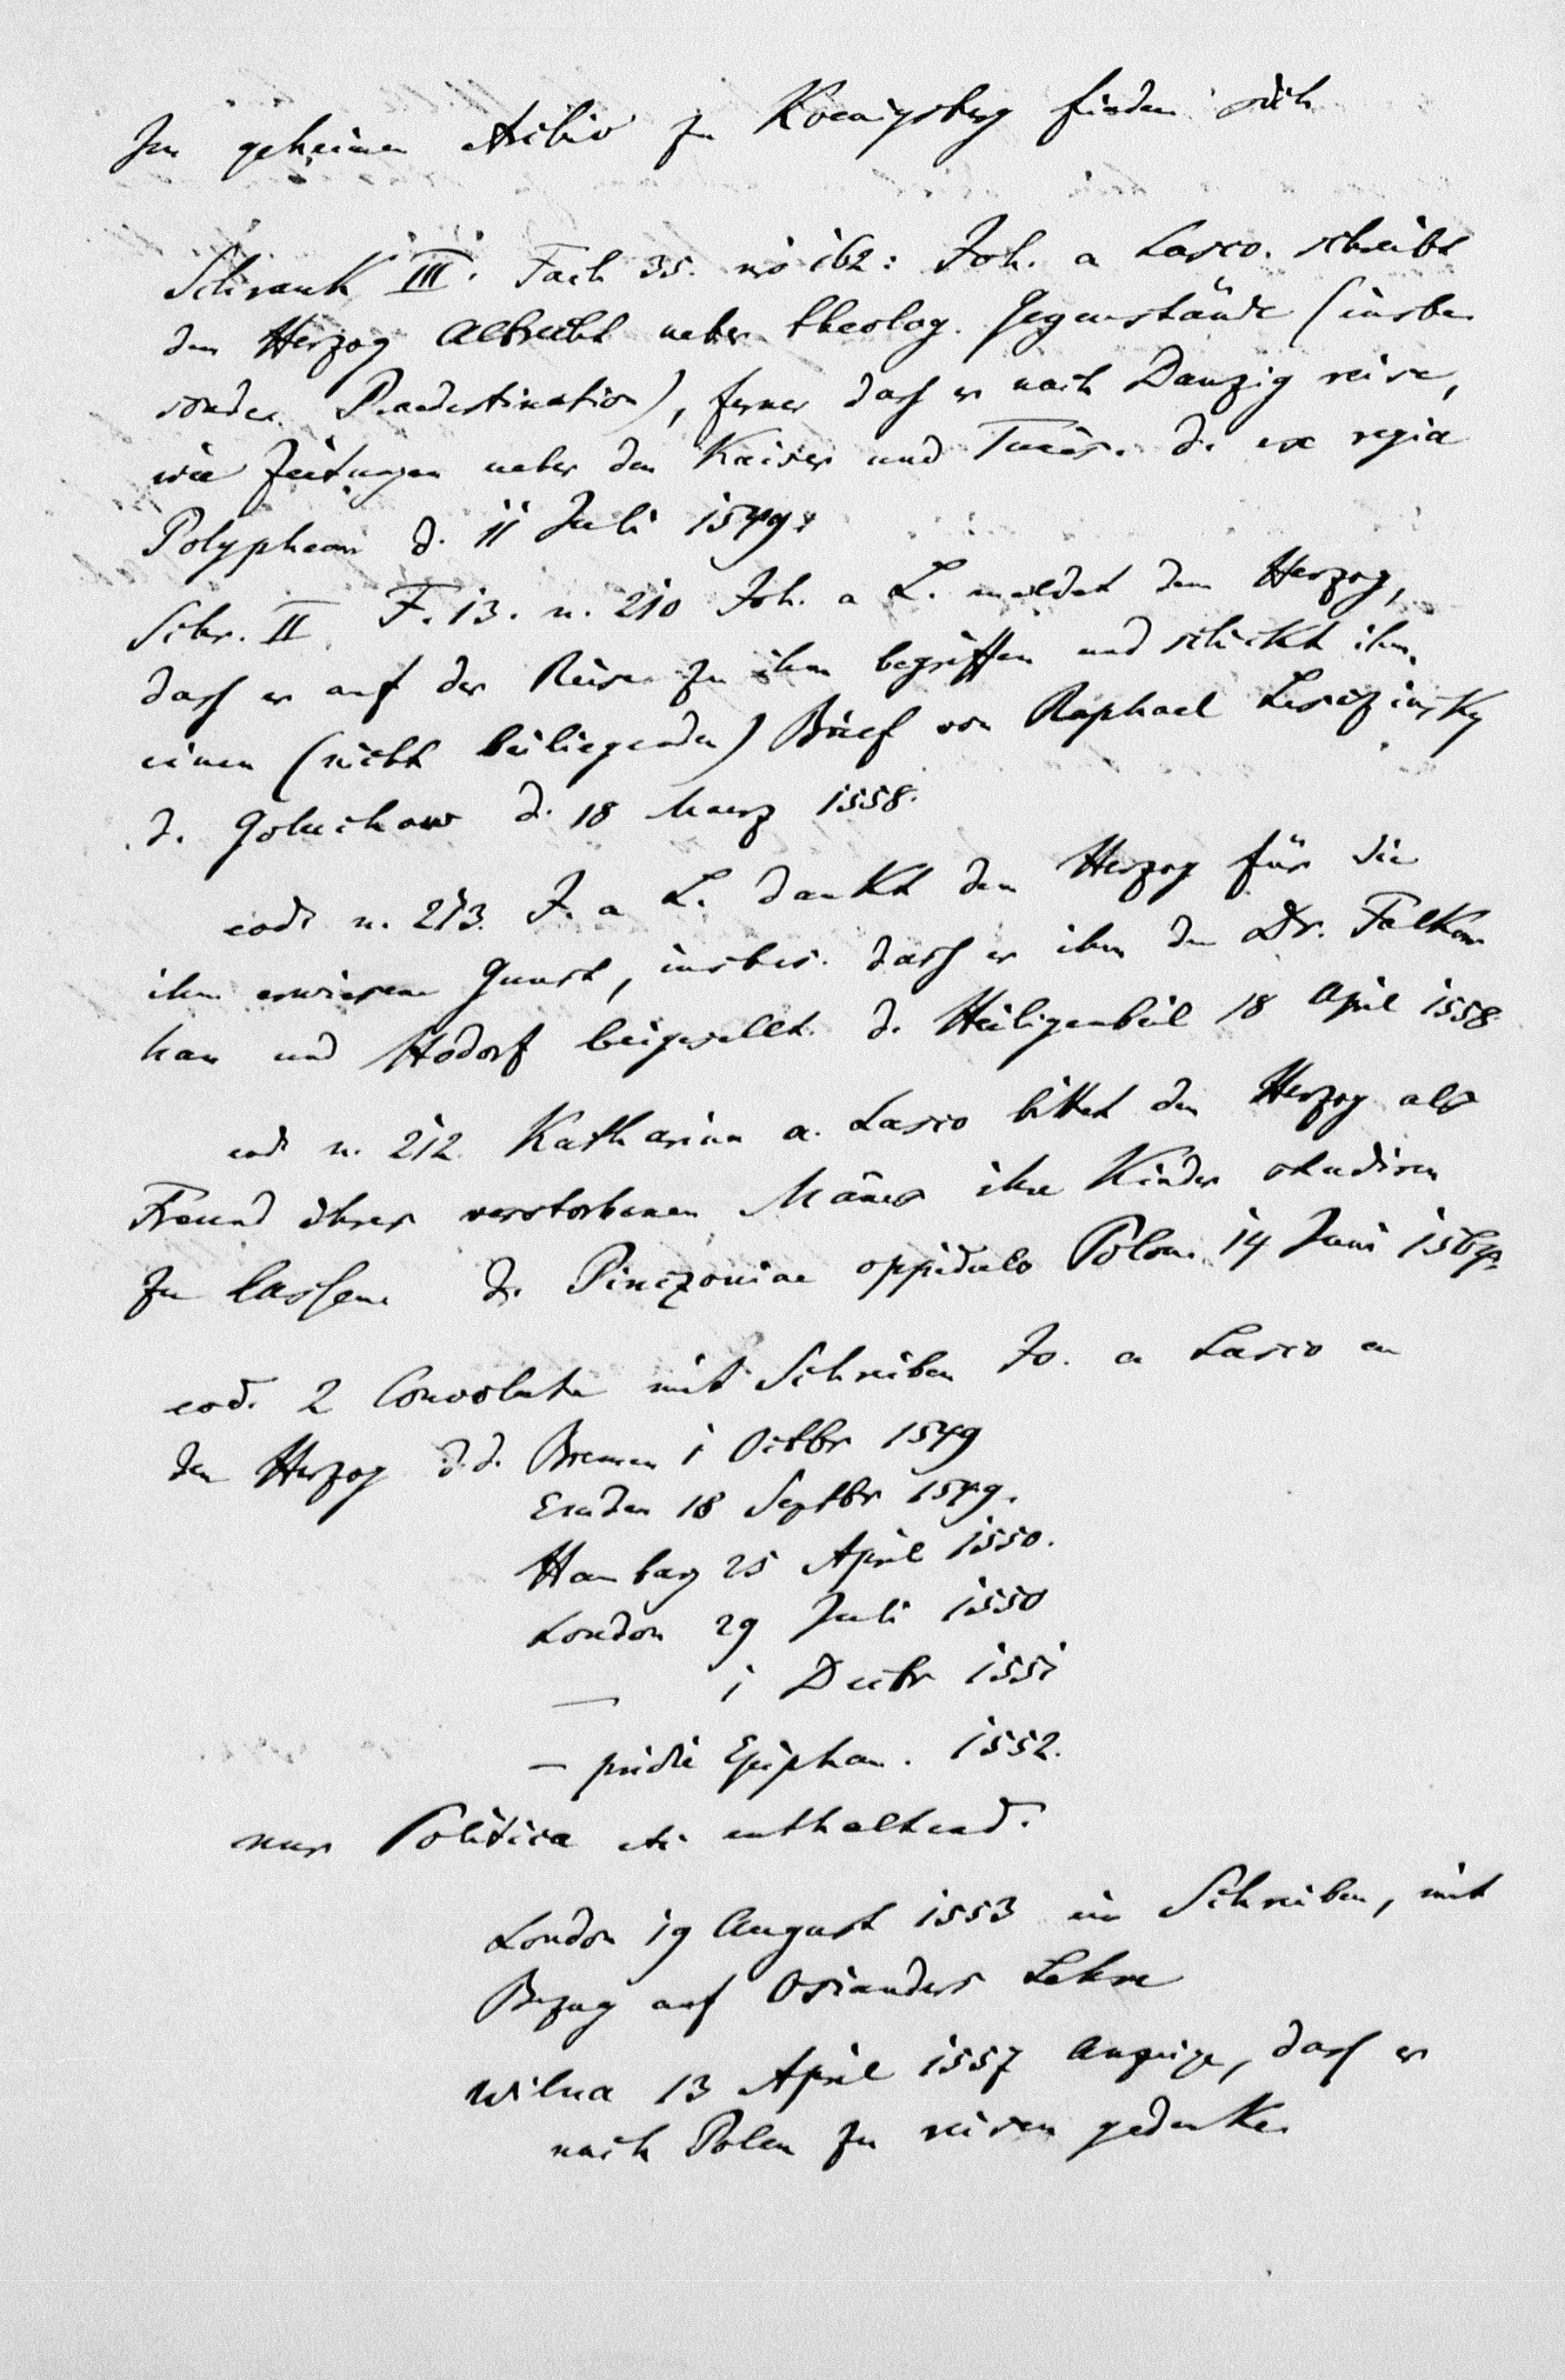 Im geheimen Archiv zu Koenigsberg finden sich
Schrank III. Fach 35. no 162: Joh. a Lasco. schreibt
dem Herzog Albrecht ueber theolog. Gegenstände (insbe
sonder. Praedestination), ferner dass er nach Danzig reise,
wie Zeitungen ueber den Kaiser und d. ex regia
d. 11 Juli 1549.
Schr. II F. 13. n. 210 Joh. a L. meldet dem Herzog,
dass er auf der Reise zu ihm begriffen und schickt ihm
einen (nicht beiliegenden) Brief von Raphael Lesczinsky
d. Goluchow d. 18 Maerz 1558.
eod. n. 213. J. a L. dankt dem Herzog für die
ihm erwiesene Gunst, insbes. dass er ihm den Dr.
und beigesellt. d. Heiligenbeil 18 April 1558
eod. n. 212. Katharina a. Lasco bittet den Herzog als
Freund ihres verstorbenen Mañes ihre Kinder studiren
zu lassen. d. Pinczoviae oppidulo Polon. 14 Juni 1564.
eod. 2 Convolute mit Schreiben Jo. a Lasco an
den Herzog d.d. Bremen 1 Octbr 1549
Emden 18 Septbr 1549.
Hamburg 25 April 1550.
London 29 Juli 1550
— 1 Decbr 1551
— pridie Epiphan. 1552.
nur Politica etc enthaltend.
London 19 August 1553 ein Schreiben, mit
Bezug auf Osianders Lehre
Wilna 13 April 1557 Anzeige, dass er
nach Polen zu reisen gedenke.